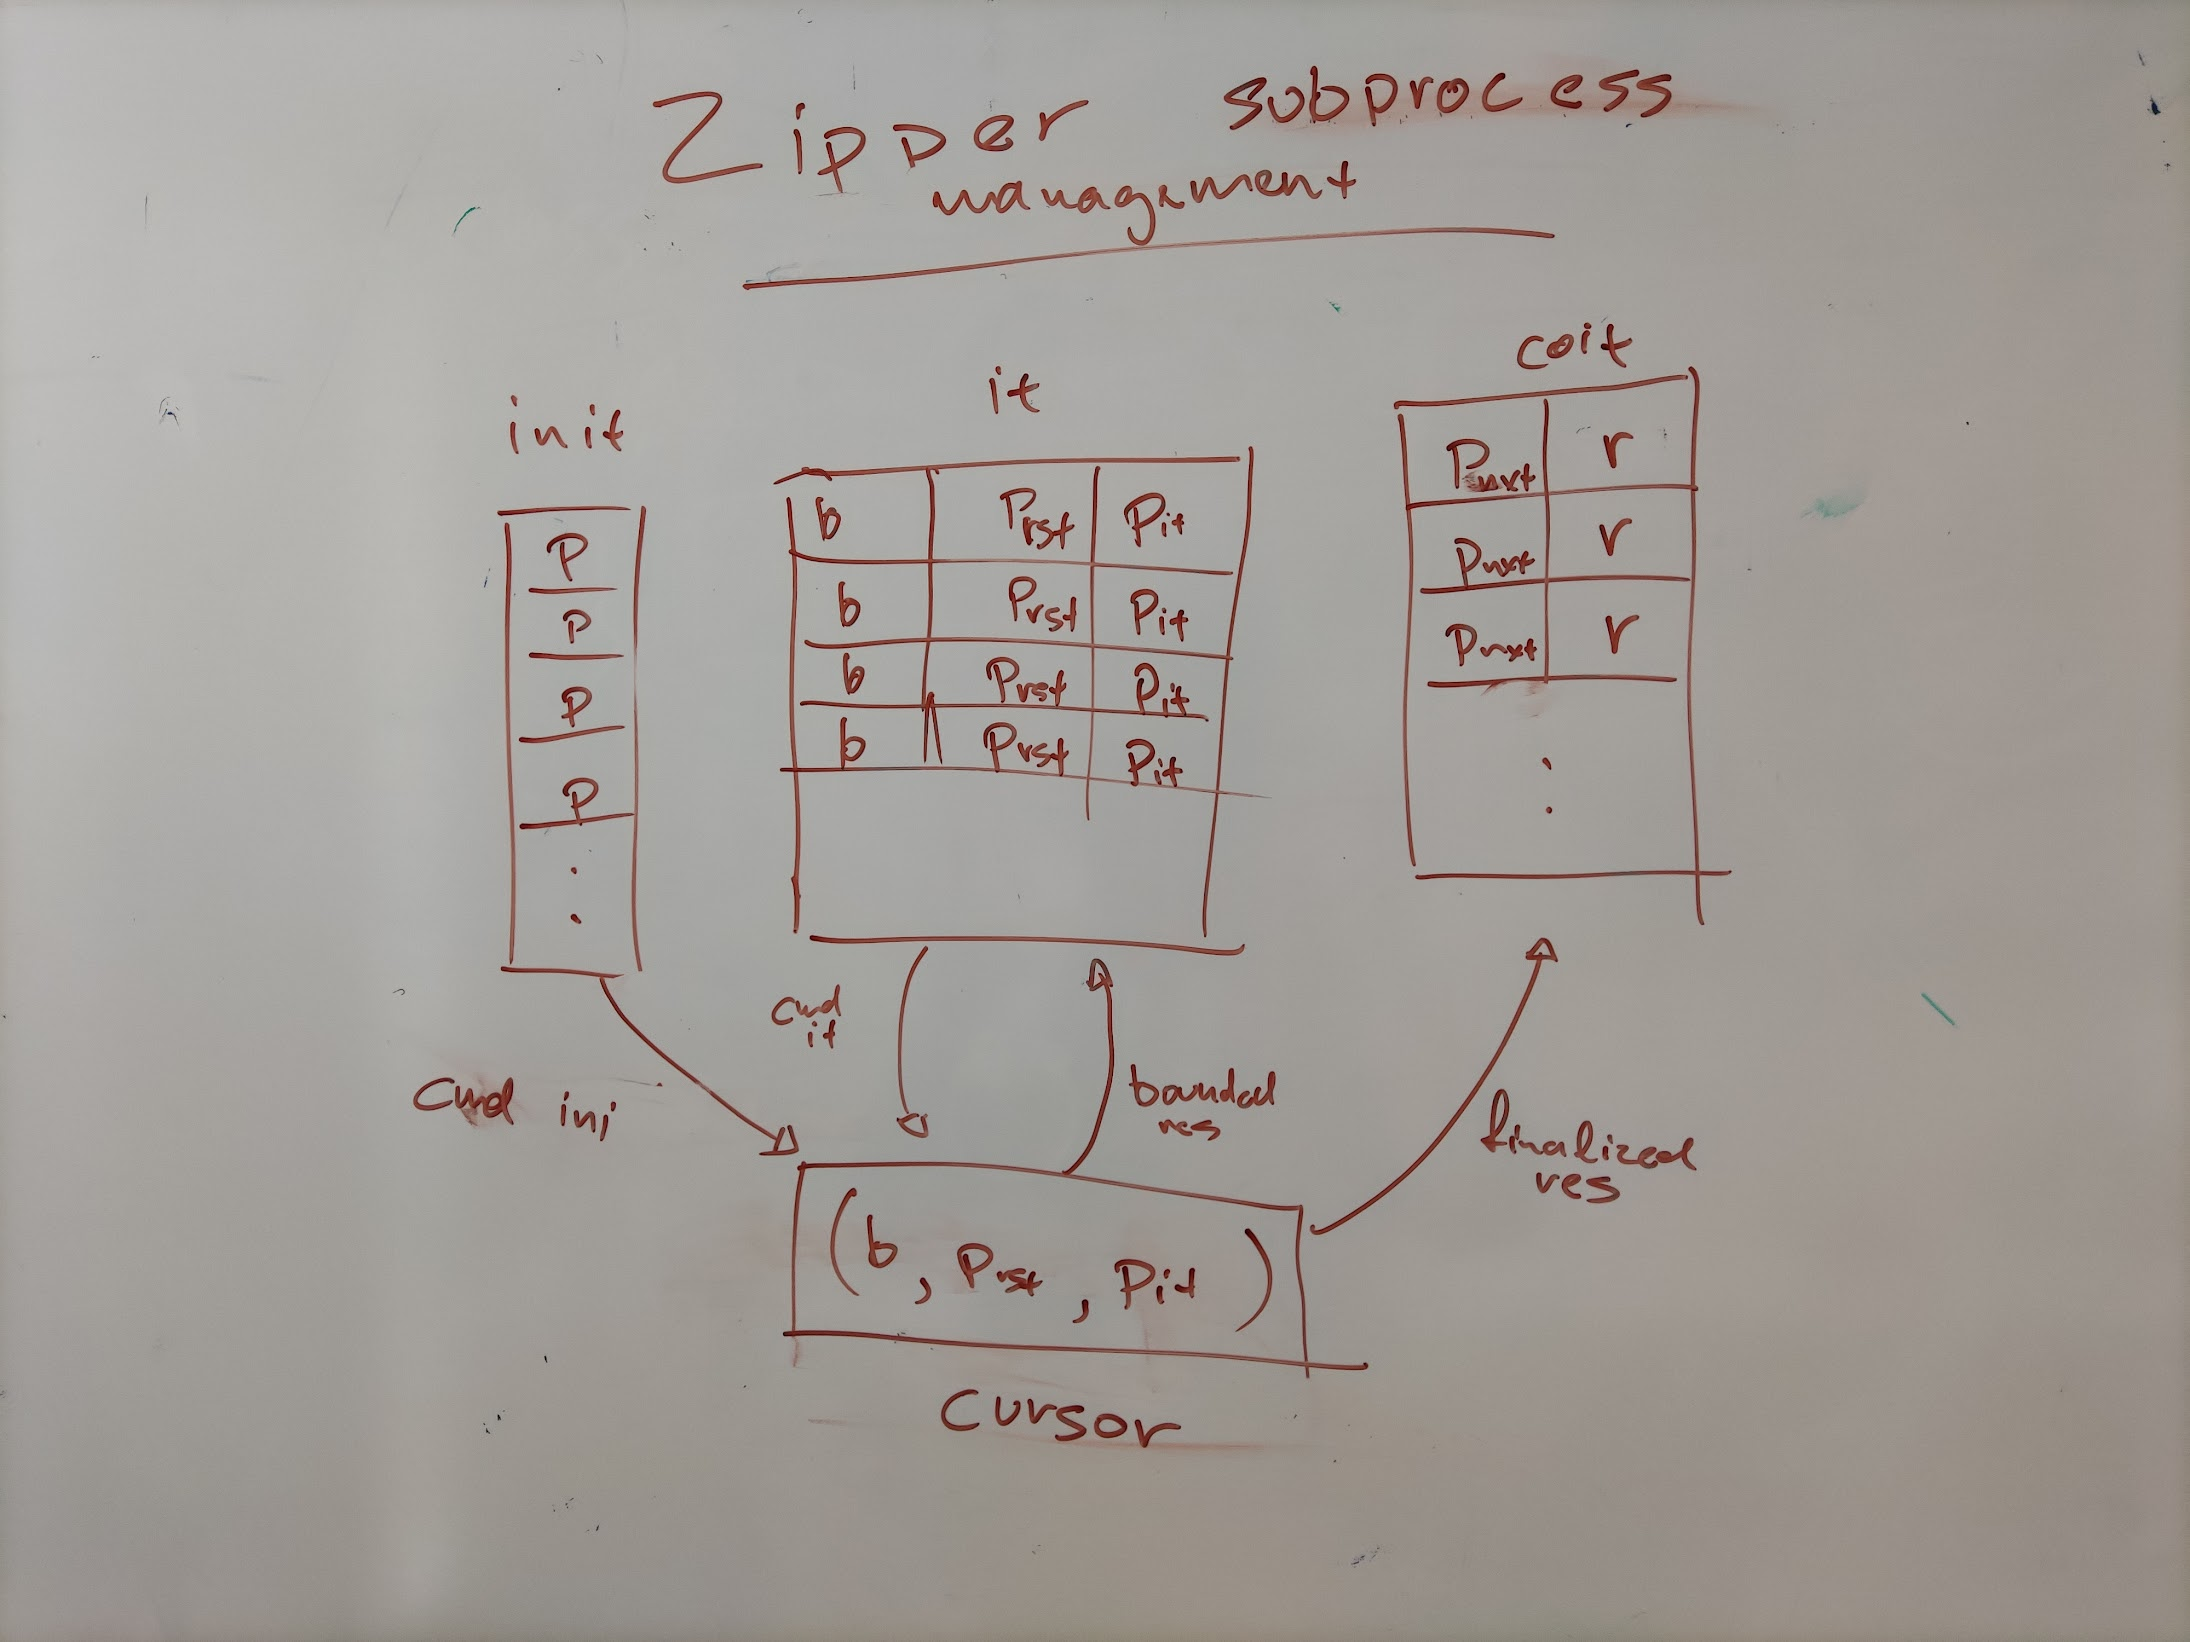 Zipper subprocess
management
init
P
P
P
P
:
it
b Prst Pit
b Prst Pit
b Prst Pit
b Prst Pit
coit
Pnxt r
Pnxt r
Pnxt r
:
cmd ini
cmd
it
bounded
res
finalized
res
(b, Prst, Pit)
cursor